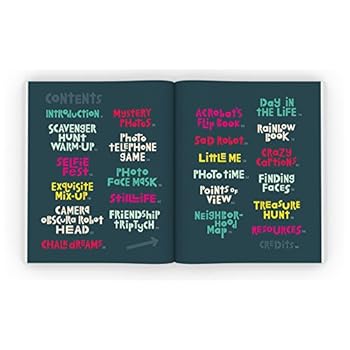 CONTENTS
INTRODUCTION
SCAVENGER
HUNT
WARM-UP
SELFIE
FEST
EXQUISITE
MIX-UP
CAMERA
OBSCURA ROBOT
HEAD
CHALK DREAMS
MYSTERY
PHOTOS
PHOTO
TELEPHONE
GAME
PHOTO
FACE MASK
STILL LIFE
FRIENDSHIP
TRIPTYCH
ACROBAT'S
FLIP BOOK
SAD ROBOT
LITTLE ME
PHOTO TIME
POINTS OF
VIEW
NEIGHBOR-
HOOD
MAP
DAY IN
THE LIFE
RAINBOW
BOOK
CRAZY
CAPTIONS
FINDING
FACES
TREASURE
HUNT
RESOURCES
CREDITS